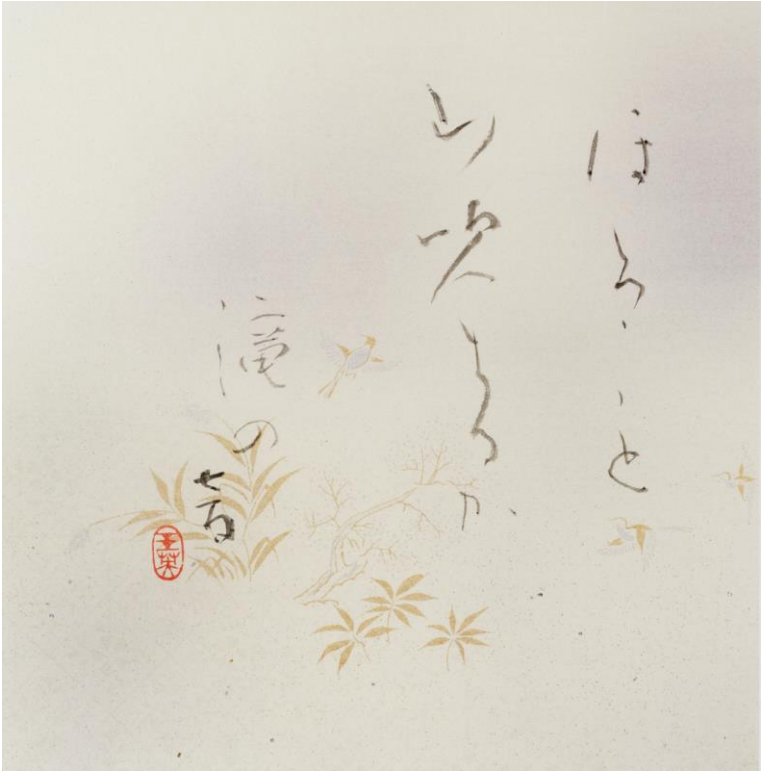 ほろゝゝと
山吹ちるか
滝の音